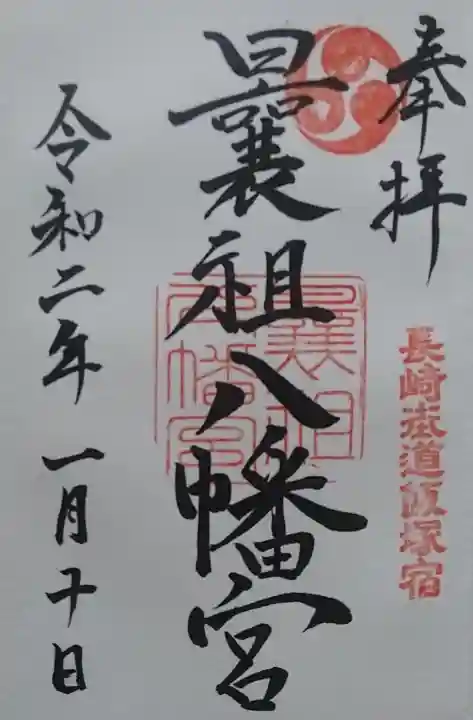 奉拝
長崎街道飯塚宿
曩祖八幡宮
曩祖八幡宮
令和二年 一月十日